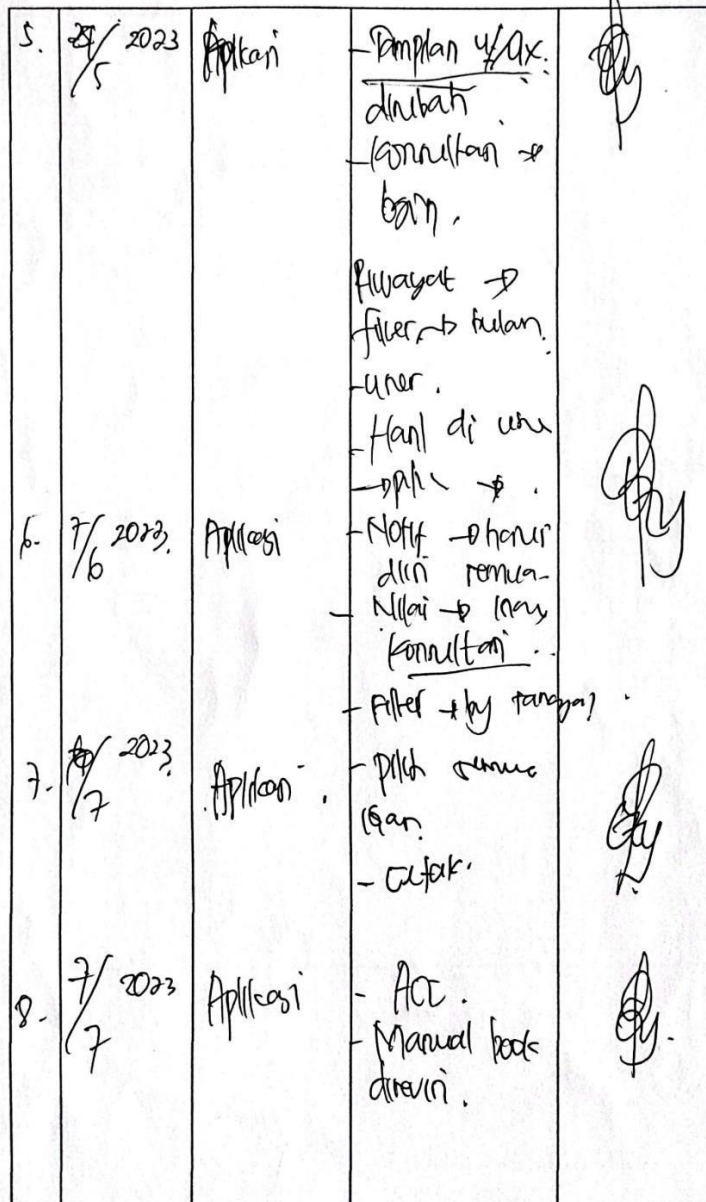 5. /5 2023 Aplikasi - Tampilan UI/UX.
dirubah
- Konsultasi →
baru.
Riwayat →
filter → bulan.
- user.
- Hasil di
→ pilih → .
6. 7/6 2023. Aplikasi - Notif → harus
dari semua.
- Nilai →
Konsultasi
- Filter → by tanggal.
7. /7 2023. Aplikasi. - pilih semua
- Cetak.
8. 7/7 2023 Aplikasi - ACC.
- Manual book
direvisi.